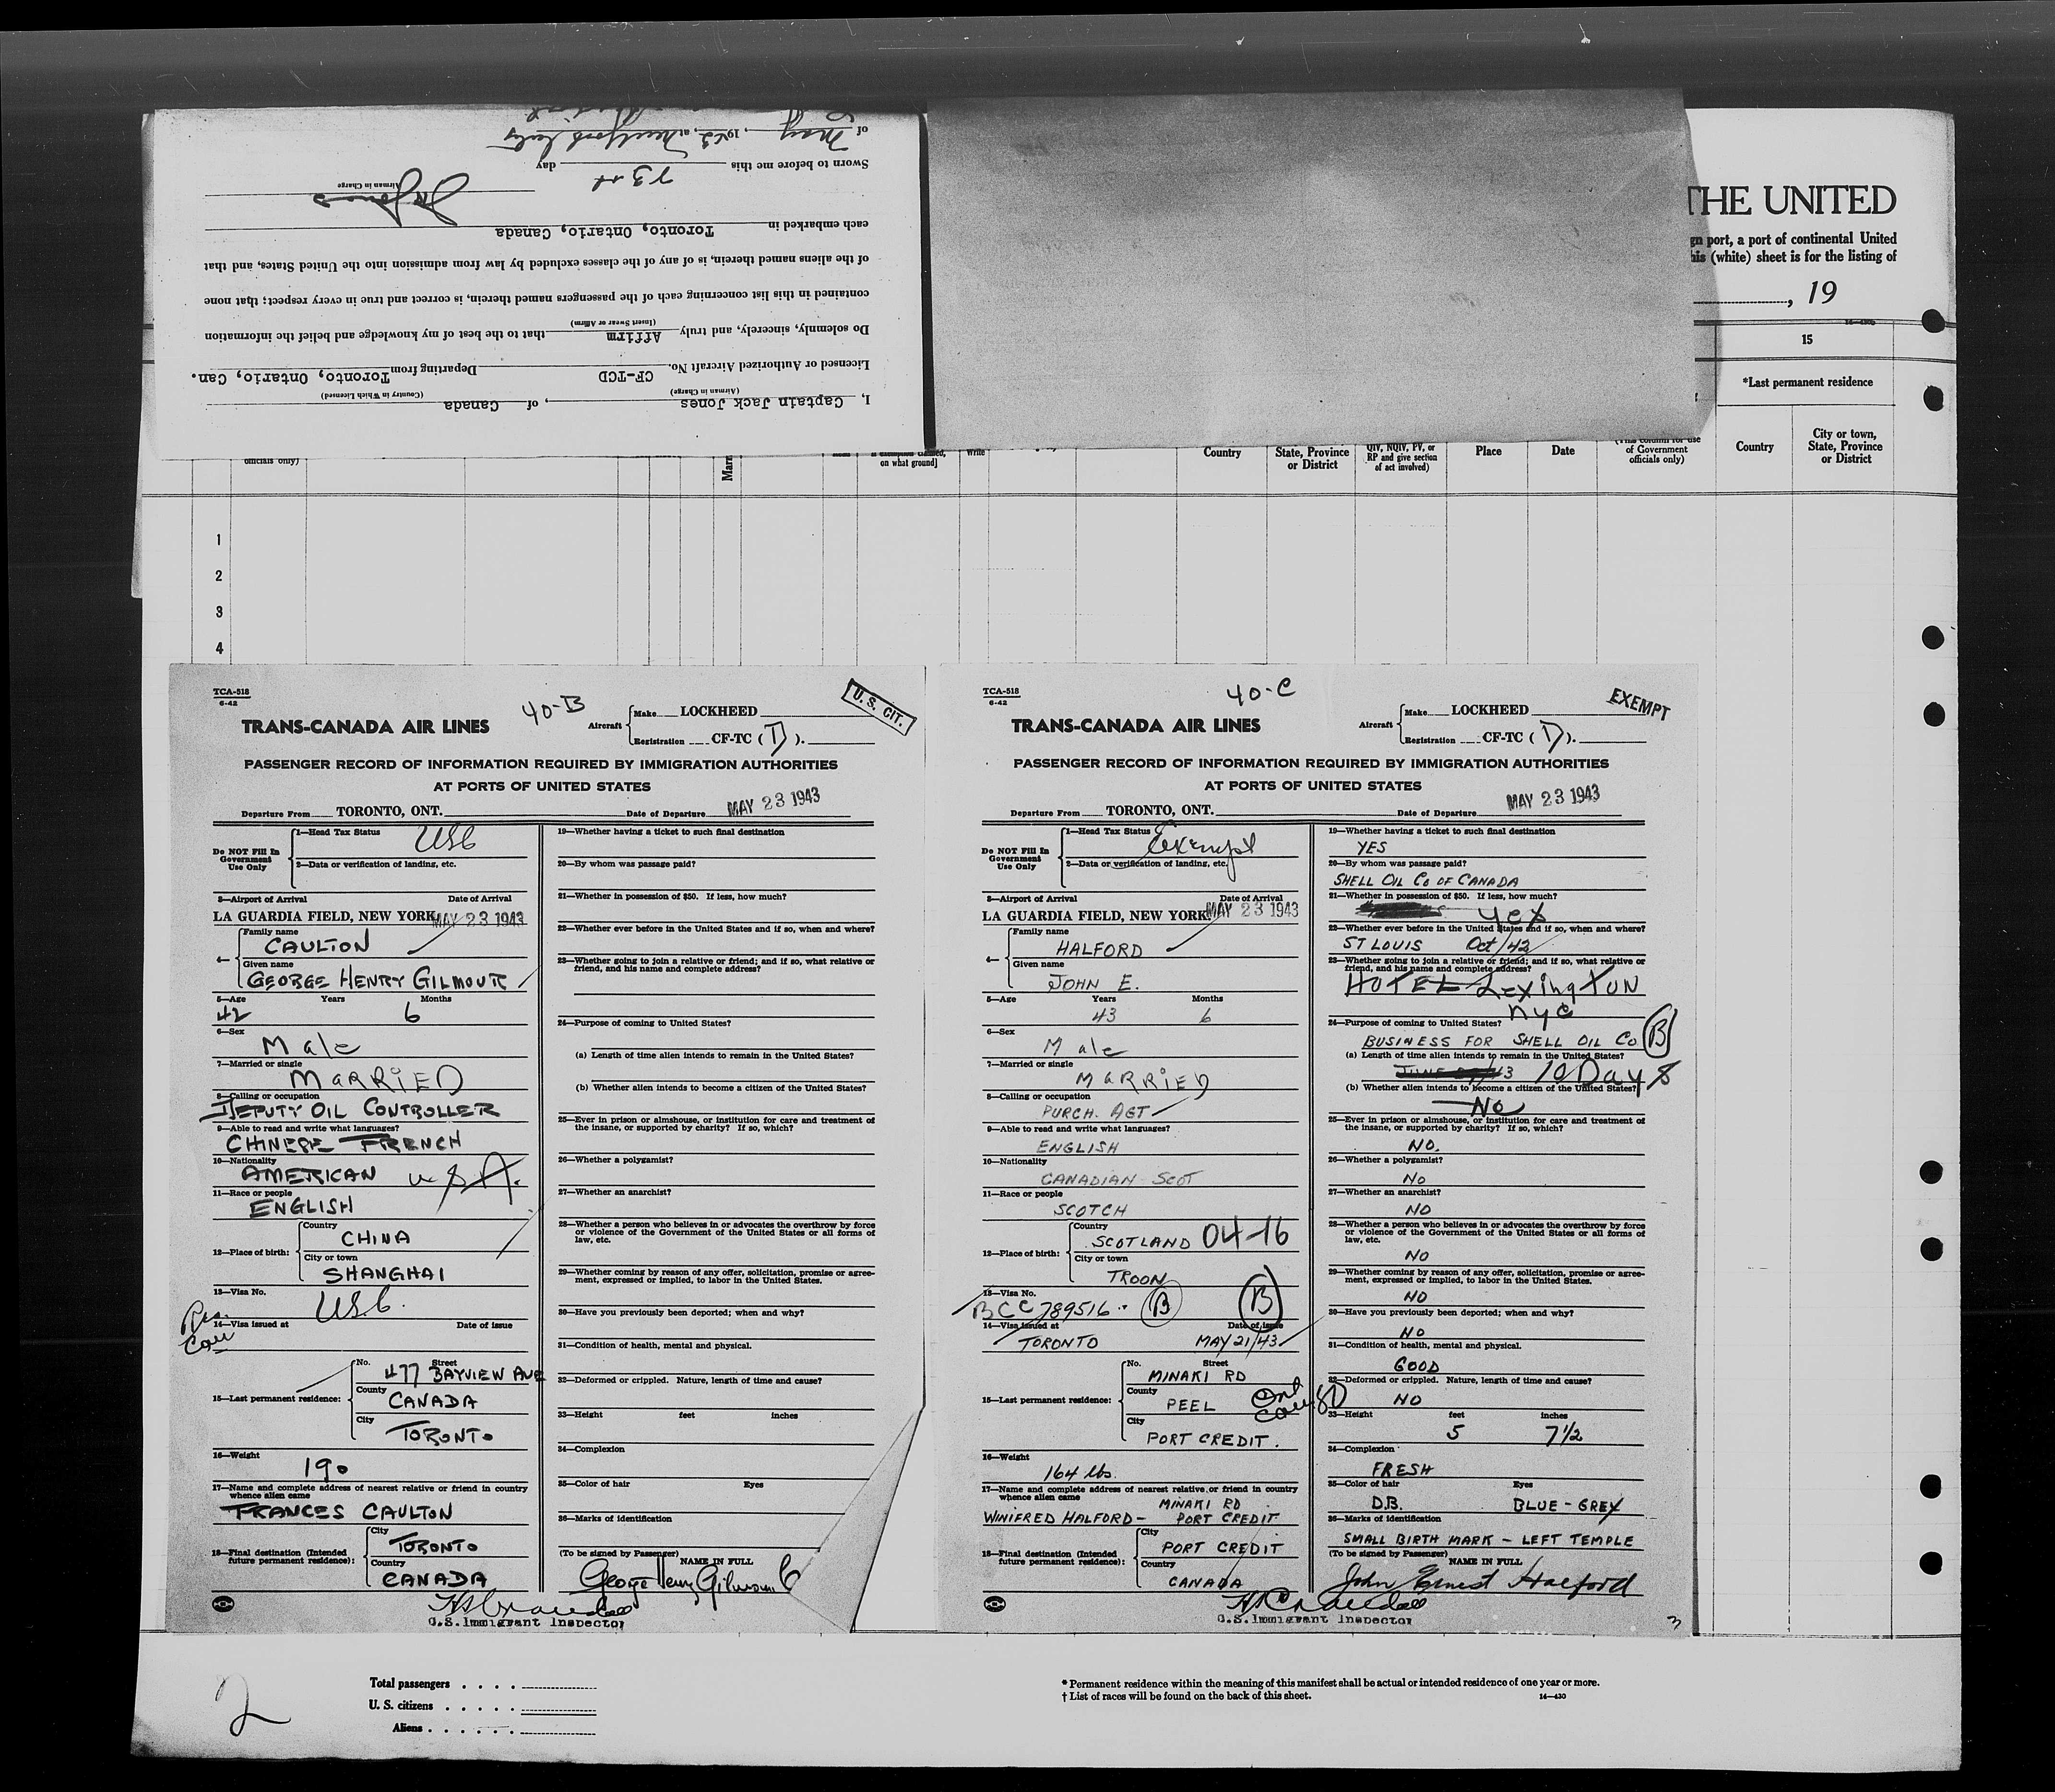 I, Captain Jack Jones, of Canada
(Airman in Charge) (Country in Which Licensed)
Licensed or Authorized Aircraft No. CF-TCD Departing from Toronto, Ontario, Can.
Do solemnly, sincerely, and truly Affirm that to the best of my knowledge and belief the information
(Insert Swear or Affirm)
contained in this list concerning each of the passengers named therein, is correct and true in every respect; that none
of the aliens named therein, is of any of the classes excluded by law from admission into the United States, and that
each embarked in Toronto, Ontario, Canada
Airman in Charge
Sworn to before me this 23rd day
of May, 1943, at
THE UNITED
gn port, a port of continental United
his (white) sheet is for the listing of
, 19
15
*Last permanent residence
officials only)
on what ground]
Write
Country
State, Province
or District
QIV, NQIV, PV, or
RP and give section
of act involved)
Place
Date
(This column for use
of Government
officials only)
Country
City or town,
State, Province
or District
1
2
3
4
TCA-518
6-42
40-B
U. S. CIT.
TRANS-CANADA AIR LINES
Aircraft
Make LOCKHEED
Registration CF-TC (D).
PASSENGER RECORD OF INFORMATION REQUIRED BY IMMIGRATION AUTHORITIES
AT PORTS OF UNITED STATES
Departure From TORONTO, ONT. Date of Departure MAY 23 1943
Do NOT Fill In
Government
Use Only
1—Head Tax Status USC
2—Data or verification of landing, etc.
3—Airport of Arrival Date of Arrival
LA GUARDIA FIELD, NEW YORK MAY 23 1943
4—
Family name
CAULTON
Given name
GEORGE HENRY GILMOUR
5—Age Years Months
42 6
6—Sex
Male
7—Married or single
MARRIED
8—Calling or occupation
DEPUTY OIL CONTROLLER
9—Able to read and write what languages?
CHINESE FRENCH
10—Nationality
AMERICAN U.S.A.
11—Race or people
ENGLISH
12—Place of birth:
Country
CHINA
City or town
SHANGHAI
13—Visa No.
USC.
14—Visa issued at Date of issue
15—Last permanent residence:
No. Street
477 BAYVIEW AVE
County
CANADA
City
TORONTO
16—Weight
190
17—Name and complete address of nearest relative or friend in country
whence alien came
FRANCES CAULTON
18—Final destination (Intended
future permanent residence):
City
TORONTO
Country
CANADA
19—Whether having a ticket to such final destination
20—By whom was passage paid?
21—Whether in possession of $50. If less, how much?
22—Whether ever before in the United States and if so, when and where?
23—Whether going to join a relative or friend; and if so, what relative or
friend, and his name and complete address?
24—Purpose of coming to United States?
(a) Length of time alien intends to remain in the United States?
(b) Whether alien intends to become a citizen of the United States?
25—Ever in prison or almshouse, or institution for care and treatment of
the insane, or supported by charity? If so, which?
26—Whether a polygamist?
27—Whether an anarchist?
28—Whether a person who believes in or advocates the overthrow by force
or violence of the Government of the United States or all forms of
law, etc.
29—Whether coming by reason of any offer, solicitation, promise or agree-
ment, expressed or implied, to labor in the United States.
30—Have you previously been deported; when and why?
31—Condition of health, mental and physical.
32—Deformed or crippled. Nature, length of time and cause?
33—Height feet inches
34—Complexion
35—Color of hair Eyes
36—Marks of identification
(To be signed by Passenger) NAME IN FULL
George Henry Gilmour C
U.S. Immigrant Inspector
TCA-518
6-42
40-C
EXEMPT
TRANS-CANADA AIR LINES
Aircraft
Make LOCKHEED
Registration CF-TC (D).
PASSENGER RECORD OF INFORMATION REQUIRED BY IMMIGRATION AUTHORITIES
AT PORTS OF UNITED STATES
Departure From TORONTO, ONT. Date of Departure MAY 23 1943
Do NOT Fill In
Government
Use Only
1—Head Tax Status Exempt
2—Data or verification of landing, etc.
3—Airport of Arrival Date of Arrival
LA GUARDIA FIELD, NEW YORK MAY 23 1943
4—
Family name
HALFORD
Given name
JOHN E.
5—Age Years Months
43 6
6—Sex
Male
7—Married or single
MARRIED
8—Calling or occupation
PURCH. AGT
9—Able to read and write what languages?
ENGLISH
10—Nationality
CANADIAN SCOT
11—Race or people
SCOTCH
12—Place of birth:
Country
SCOTLAND 04-16
City or town
TROON
13—Visa No.
BCC 789516 B B
14—Visa issued at Date of issue
TORONTO MAY 21/43
15—Last permanent residence:
No. Street
MINAKI RD
County
PEEL Ont
City
PORT CREDIT.
16—Weight
164 lbs.
17—Name and complete address of nearest relative or friend in country
whence alien came
MINAKI RD
WINIFRED HALFORD - PORT CREDIT
18—Final destination (Intended
future permanent residence):
City
PORT CREDIT
Country
CANADA
19—Whether having a ticket to such final destination
YES
20—By whom was passage paid?
SHELL OIL CO OF CANADA
21—Whether in possession of $50. If less, how much?
Yes
22—Whether ever before in the United States and if so, when and where?
ST LOUIS Oct/42
23—Whether going to join a relative or friend; and if so, what relative or
friend, and his name and complete address?
HOTEL Lexington
NYC
24—Purpose of coming to United States?
BUSINESS FOR SHELL OIL CO B
(a) Length of time alien intends to remain in the United States?
10 Days
(b) Whether alien intends to become a citizen of the United States?
No
25—Ever in prison or almshouse, or institution for care and treatment of
the insane, or supported by charity? If so, which?
NO.
26—Whether a polygamist?
NO
27—Whether an anarchist?
NO
28—Whether a person who believes in or advocates the overthrow by force
or violence of the Government of the United States or all forms of
law, etc.
NO
29—Whether coming by reason of any offer, solicitation, promise or agree-
ment, expressed or implied, to labor in the United States.
NO
30—Have you previously been deported; when and why?
NO
31—Condition of health, mental and physical.
GOOD
32—Deformed or crippled. Nature, length of time and cause?
NO
33—Height feet inches
5 7½
34—Complexion
FRESH
35—Color of hair Eyes
D.B. BLUE - GREY
36—Marks of identification
SMALL BIRTH MARK - LEFT TEMPLE
(To be signed by Passenger) NAME IN FULL
John Ernest Halford
U.S. Immigrant Inspector
3
2
Total passengers . . . .
U. S. citizens . . . . .
Aliens . . . . . .
* Permanent residence within the meaning of this manifest shall be actual or intended residence of one year or more.
† List of races will be found on the back of this sheet.
14—430